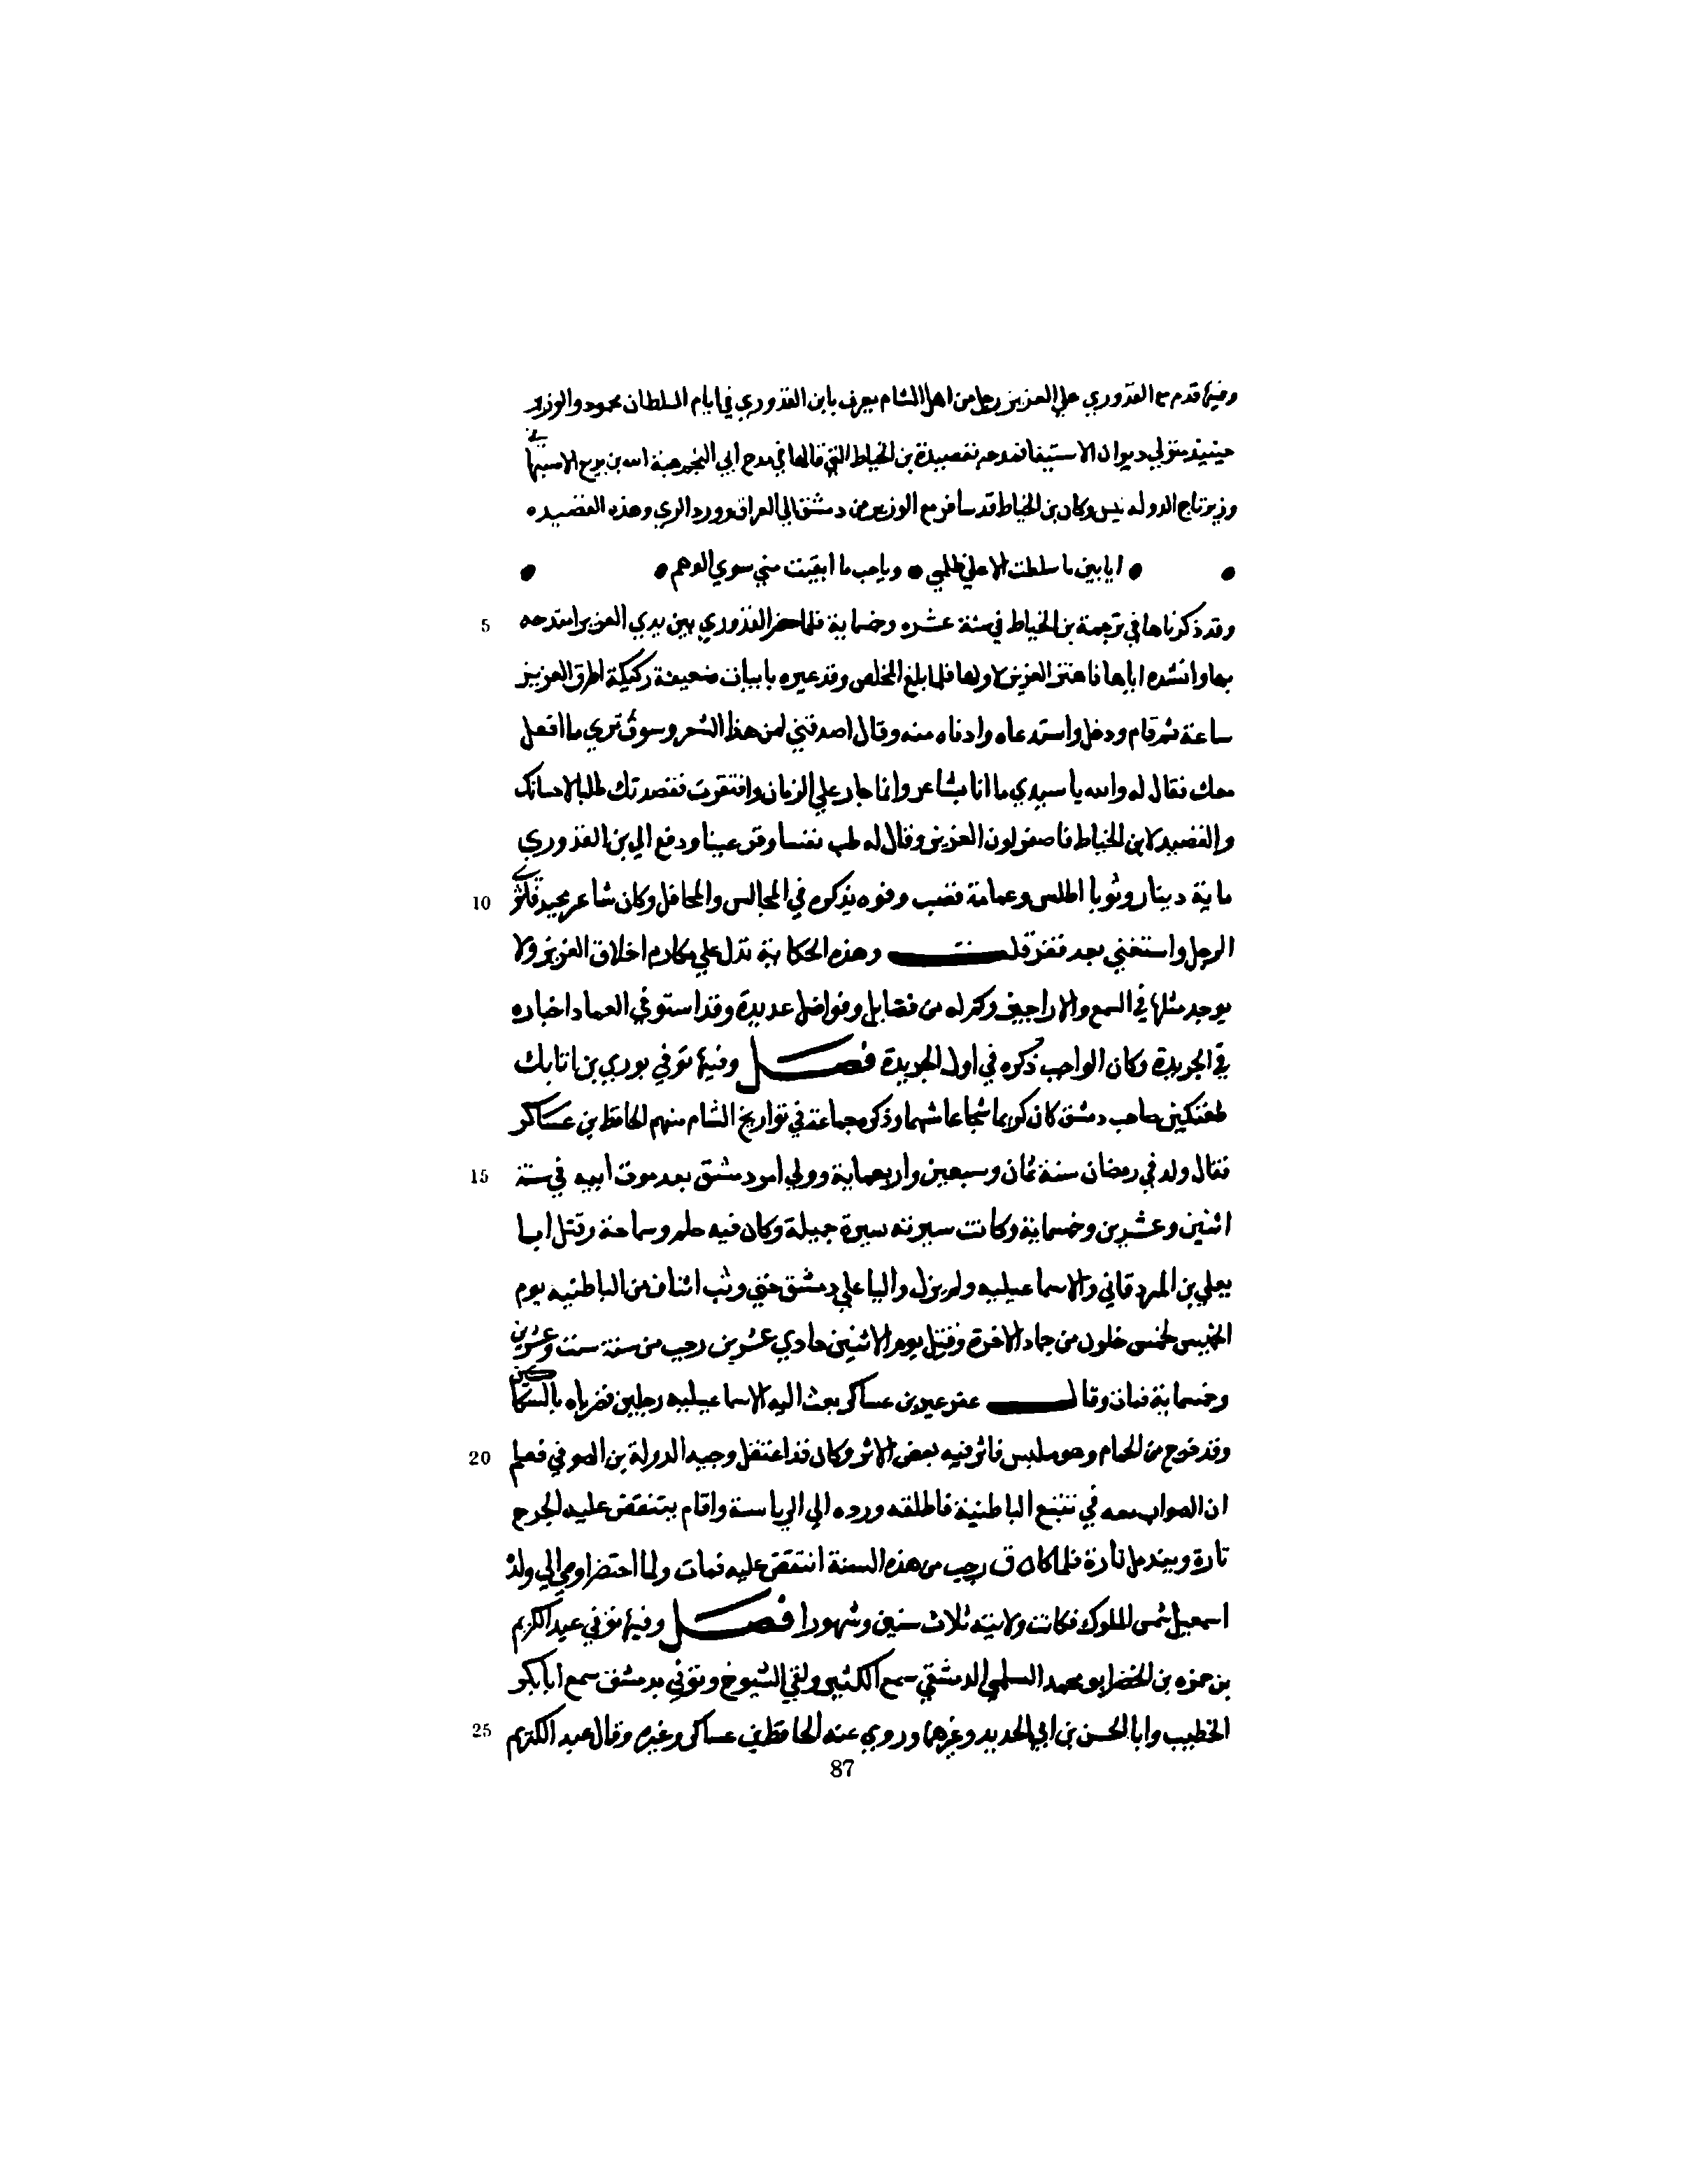 وفيها قدم القذوري علي العزيز رجل من اهل الشام يعرف بابن القذوري في ايام السلطان محمود والوزير
حينيذ متولي ديوان الاستيفا فمدحه بقصيدة بن الخياط التي قالها في مدح ابي النجم هبة الله بن بديع الاصبهاني
وزير تاج الدوله تتش وكان بن الخياط قد سافر مع الوزير من دمشق الي العراق وورد الري وهذه القصيده
ايا بين ما سلطت الا علي ظلمي • ويا حب ما ابقيت مني سوي الوهم •
5 وقد ذكرناها في ترجمة بن الخياط في سنة عشره وخمسماية فلما حضر القذوري بين يدي العزيز امتدحه
بها وانشده اياها فاهتز العزيز لاولها فلما بلغ المخلص وقد غيره بابيات ضعيفة ركيكة اطرق العزيز
ساعة ثم قام ودخل واستدعاه وادناه منه وقال اصدقني لمن هذا الشعر وسوف تري ما افعل
معك فقال له والله يا سيدي ما انا بشاعر وانما جار علي الزمان وافتقرت فقصدتك طلبا لاحسانك
والقصيد لابن الخياط فاصفر لون العزيز وقال له طب نفسا وقر عينا ودفع الي بن القذوري
10 ماية دينار وثوبا اطلس وعمامة قصب وفوه بذكره في المجالس والمحافل وكان شاعر مجيد فاثري
الرجل واستغني بعد فقر قلت وهذه الحكاية تدل علي مكارم اخلاق العزيز ولا
يوجد مثلها في السمع والاراجيف وكم له من فضايل وفواضل عديدة وقد استوفي العماد اخباره
في الجريدة وكان الواجب ذكره في اول الجريدة فصل وفيها توفي بوري بن اتابك
طغتكين صاحب دمشق كان كريما شجاعا شهما وذكره جماعة في تواريخ الشام منهم الحافظ بن عساكر
15 فقال ولد في رمضان سنة ثمان وسبعين واربعماية وولي امر دمشق بعد موت ابيه في سنة
اثنين وعشرين وخمسماية وكانت سيرته سيرة جميلة وكان فيه حلم وسماحة وقتل ابا
يعلي بن المردقاني والاسماعيليه ولم يزل واليا علي دمشق حتي وثب اثنان من الباطنيه يوم
الخميس لخمس خلون من جماد الاخرة وقتل يوم الاثنين حادي عشرين رجب من سنة ست وعشرين
وخمسماية فمات وقال بن عساكر بعث اليه الاسماعيليه رجلين فضرباه بالسكاكين
20 وقد خرج من الحمام وهو ملبس فاثر فيه بعض الاثر وكان قد اعتقل وجيه الدولة بن الصوفي فعلم
ان الصواب معه في تتبع الباطنية فاطلقه ورده الي الرياسة واقام ينتقض عليه الجرح
تارة ويندمل تارة فلما كان في رجب من هذه السنة انتقض عليه فمات ولما احتضر اوصي الي ولده
اسمعيل شمس الملوك فكانت ولايته ثلاث سنين وشهورا فصل وفيها توفي عبد الكريم
بن حمزه بن الخضر ابو محمد السلمي الدمشقي سمع الكثير ولقي الشيوخ وتوفي بدمشق سمع ابا بكر
25 الخطيب وابا الحسن بن ابي الحديد وغيرهما وروي عنه الحافظ بن عساكر وغيره وقال عبد الكريم
87